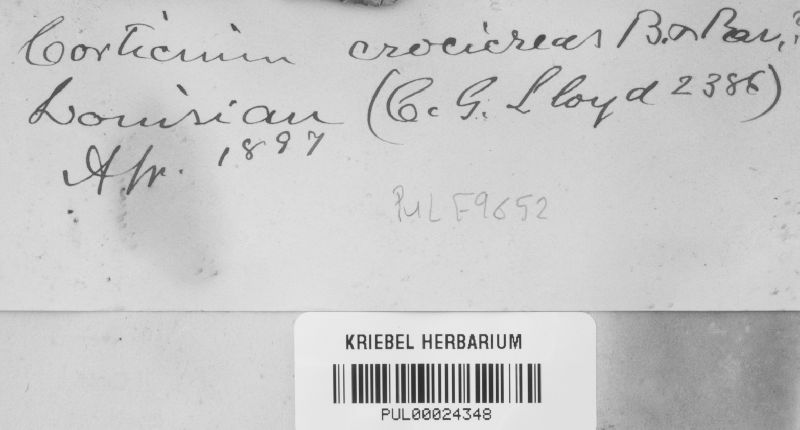 Corticium crocicreas B. & Rav.?
Louisian (C. G. Lloyd 2386)
Apr. 1897
PUL F9652
KRIEBEL HERBARIUM
PUL00024348